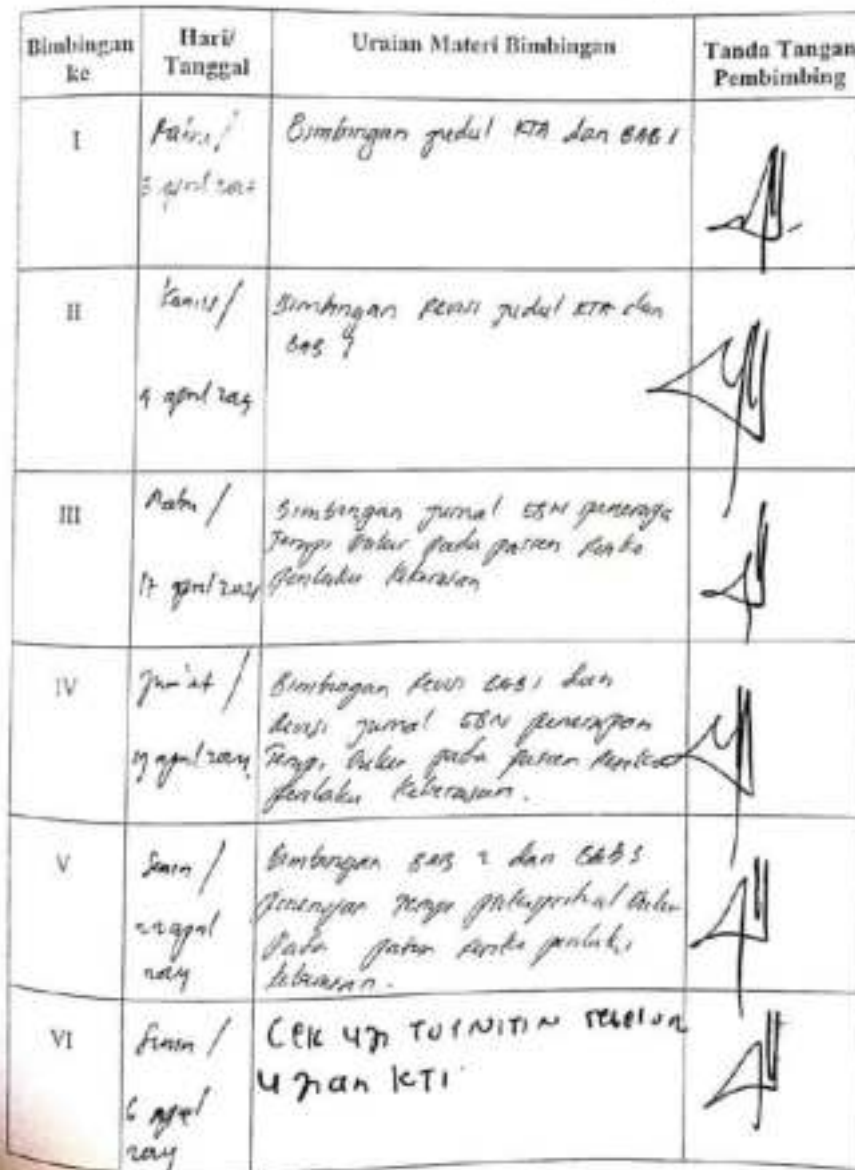 Bimbingan ke
Hari/ Tanggal
Uraian Materi Bimbingan
Tanda Tangan Pembimbing
I
3 april 2024
Bimbingan judul KTA dan BAB 1
II
Kamis/
4 april 2024
Bimbingan revisi judul KTA dan
BAB 1
III
Rabu /
17 april 2024
Bimbingan jurnal EBN penerapa
pada pasien
perilaku kekerasan
IV
Jum'at /
19 april 2024
Bimbingan revisi BAB 1 dan
revisi jurnal EBN penerapan
pada pasien
perilaku kekerasan.
V
Senin /
22 april
2024
Bimbingan BAB 2 dan BAB 3
penerapan
pada pasien resiko perilaku
kekerasan.
VI
Senin /
6
2024
Cek uji TURNITIN sebelum
ujian KTI